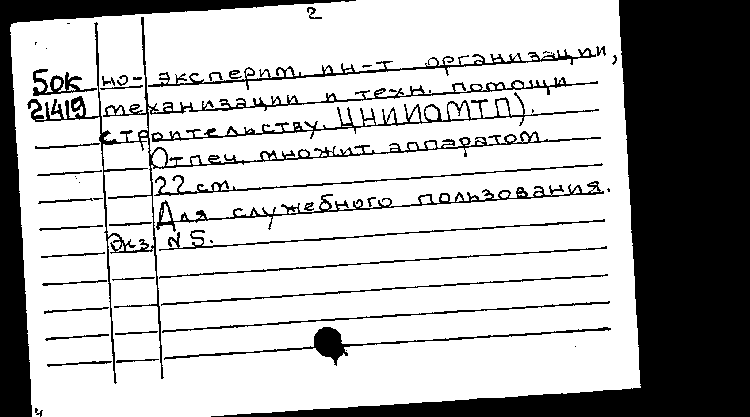 2
50к но-эксперим. ин-т организации,
21419 механизации и техн. помощи
строительству. ЦНИИОМТП).
Отпеч. множит. аппаратом.
22 см.
Для служебного пользования.
Экз. N 5.
ч